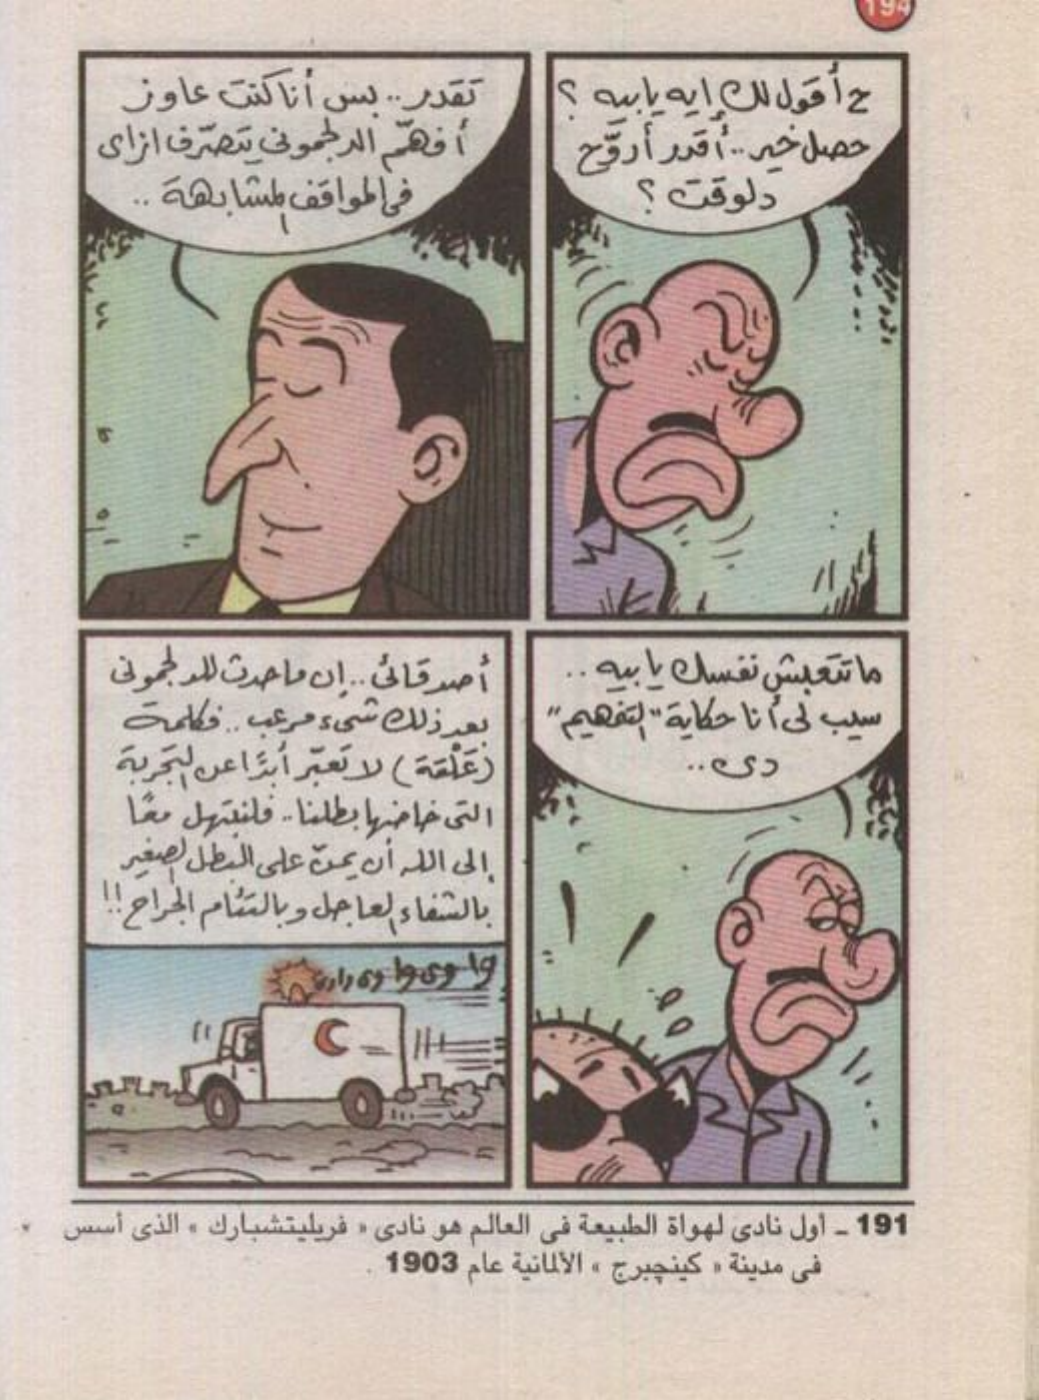 194
ح أقول لك إيه يا بيه ؟
حصل خير .. أقدر أروّح
دلوقت ؟
تقدر .. بس أنا كنت عاوز
أفهّم الدلجمونى يتصرّف ازاى
فى المواقف المشابهة ..
ما تتعبش نفسك يا بيه ..
سيب لى أنا حكاية "التفهيم"
دى ..
أصدقائى .. إن ما حدث للدلجمونى
بعد ذلك شىء مرعب .. فكلمة
(عَلْقة) لا تعبّر أبدًا عن التجربة
التى خاضها بطلنا .. فلنبتهل معًا
إلى الله أن يمنّ على البطل الصغير
بالشفاء العاجل وبالتئام الجراح !!
وا وى وا وى
191 ـ أول نادى لهواة الطبيعة فى العالم هو نادى « فريليتشبارك » الذى أسس
فى مدينة « كينچبرج » الألمانية عام 1903 .